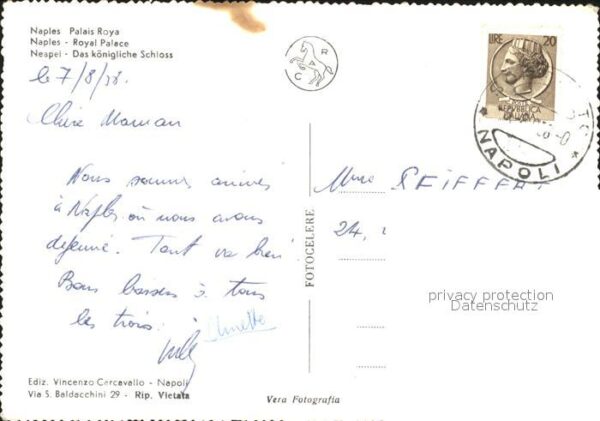 Naples Palais Roya
Naples - Royal Palace
Neapel - Das königliche Schloss
C A R
LIRE 20
REPVBBLICA
ITALIANA
NAPOLI
le 7/8/58.
Chère Maman
Nous sommes arrivés
à Naples où nous avons
déjeuné. Tout va bien
Bons baisers à tous
les trois.
Willy
Ginette
Mme PFEIFFER
24,
FOTOCELERE
privacy protection
Datenschutz
Ediz. Vincenzo Carcavallo - Napoli
Via S. Baldacchini 29 - Rip. Vietata
Vera Fotografia